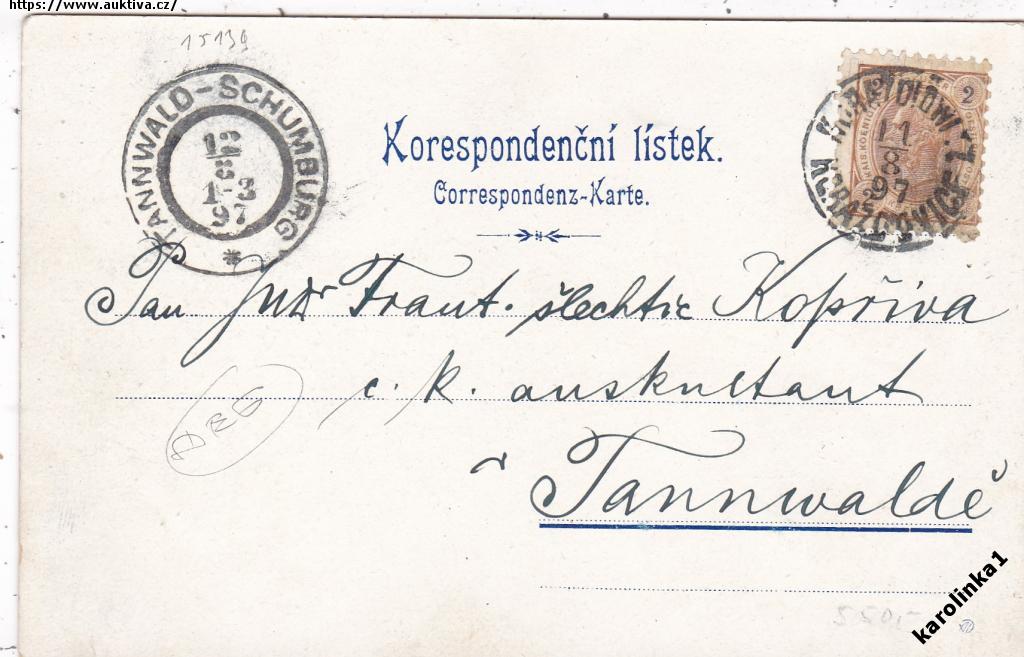 https://www.auktiva.cz/
15139
TANNWALD-SCHUMBURG
12
8
1-3
97
*
Korespondenční lístek.
Correspondenz-Karte.
2
11
8
97
Pan JUDr Frant. šlechtic Kopřiva
c. k. auskultant
v Tannwaldě
550,-
karolinka1